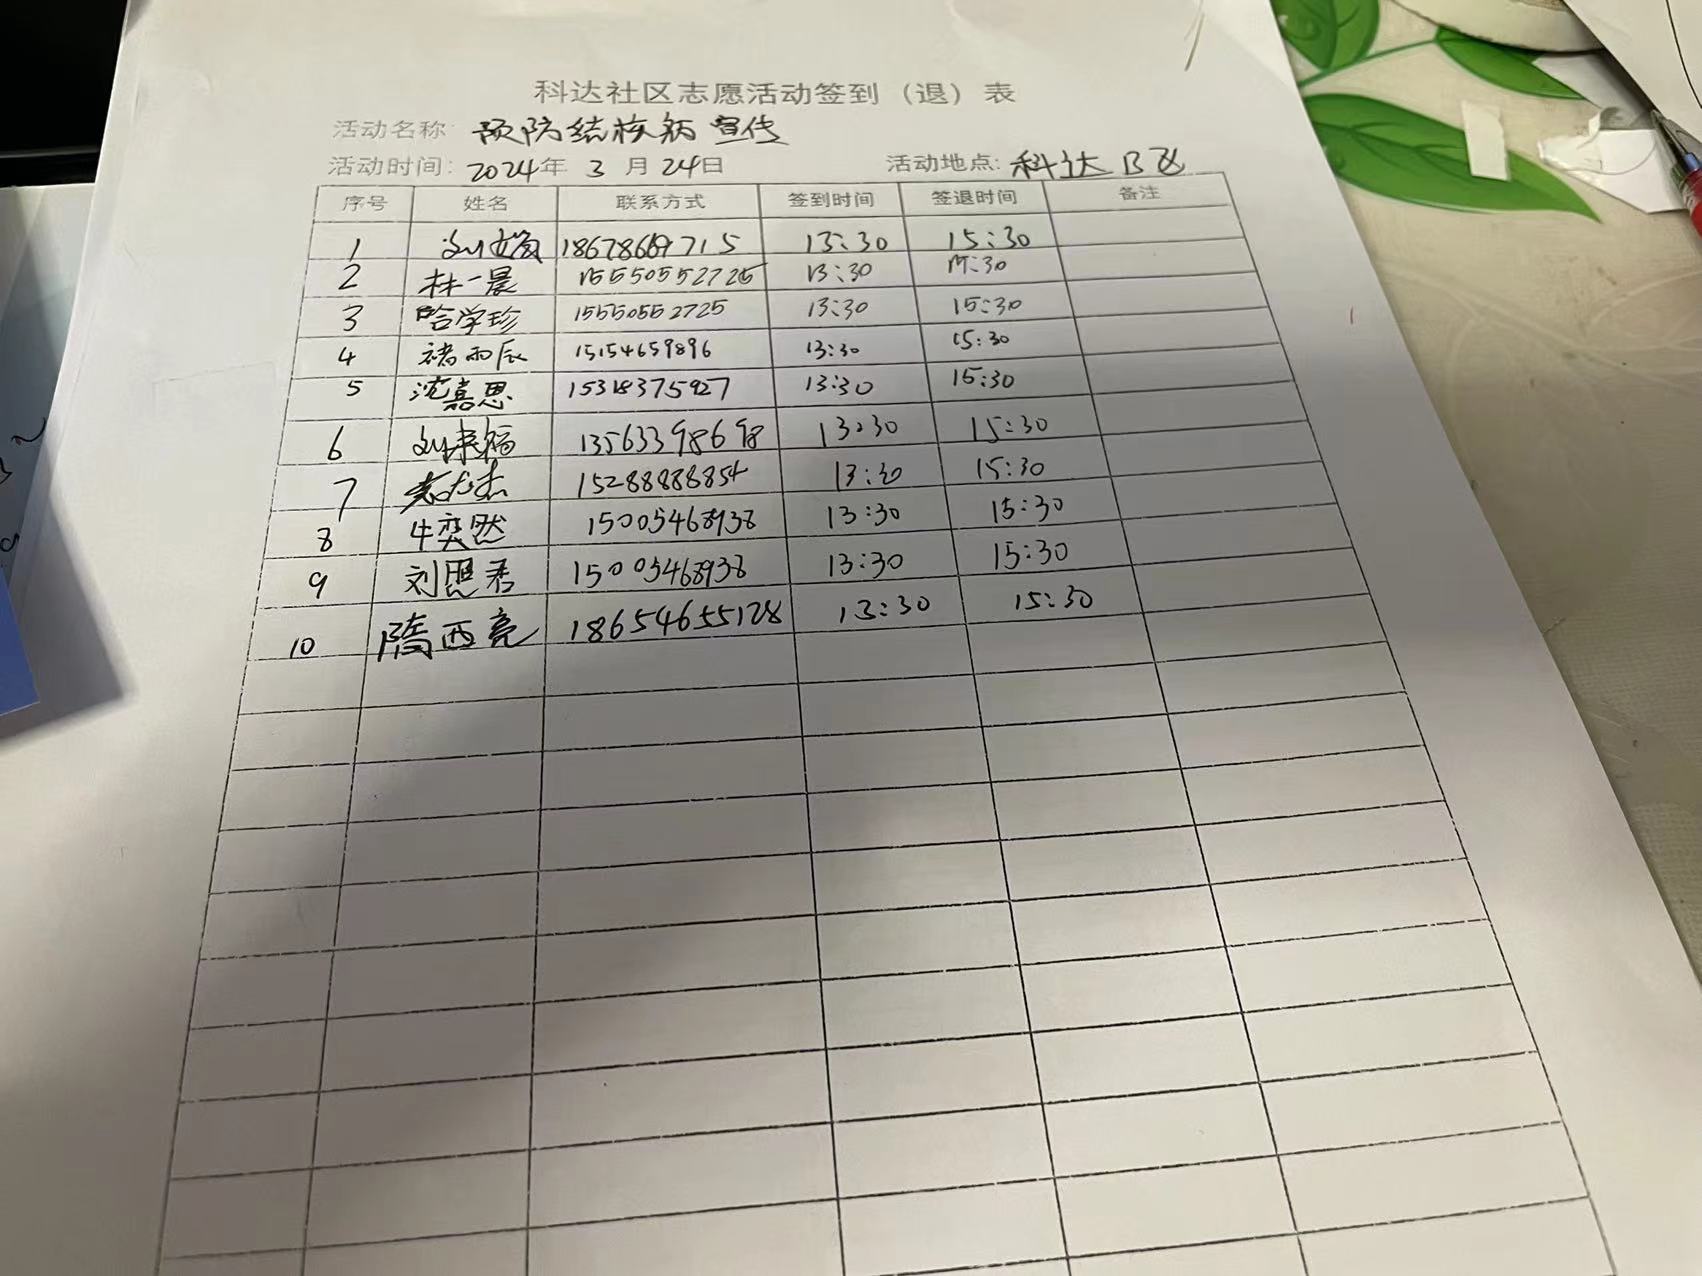 科达社区志愿活动签到（退）表
活动名称: 预防结核病宣传
活动时间: 2024年 3 月 24日 活动地点: 科达B区
序号 姓名 联系方式 签到时间 签退时间 备注
1 刘 18678669715 13:30 15:30
2 林一晨 15550552725 13:30 15:30
3 哈学珍 15550552725 13:30 15:30
4 褚雨辰 15154659896 13:30 15:30
5 沈嘉思 15318375927 13:30 15:30
6 刘来福 13563398698 13:30 15:30
7 15288888854 13:30 15:30
8 牛奕然 15005468938 13:30 15:30
9 刘照君 15005468938 13:30 15:30
10 隋西亮 18654655128 13:30 15:30